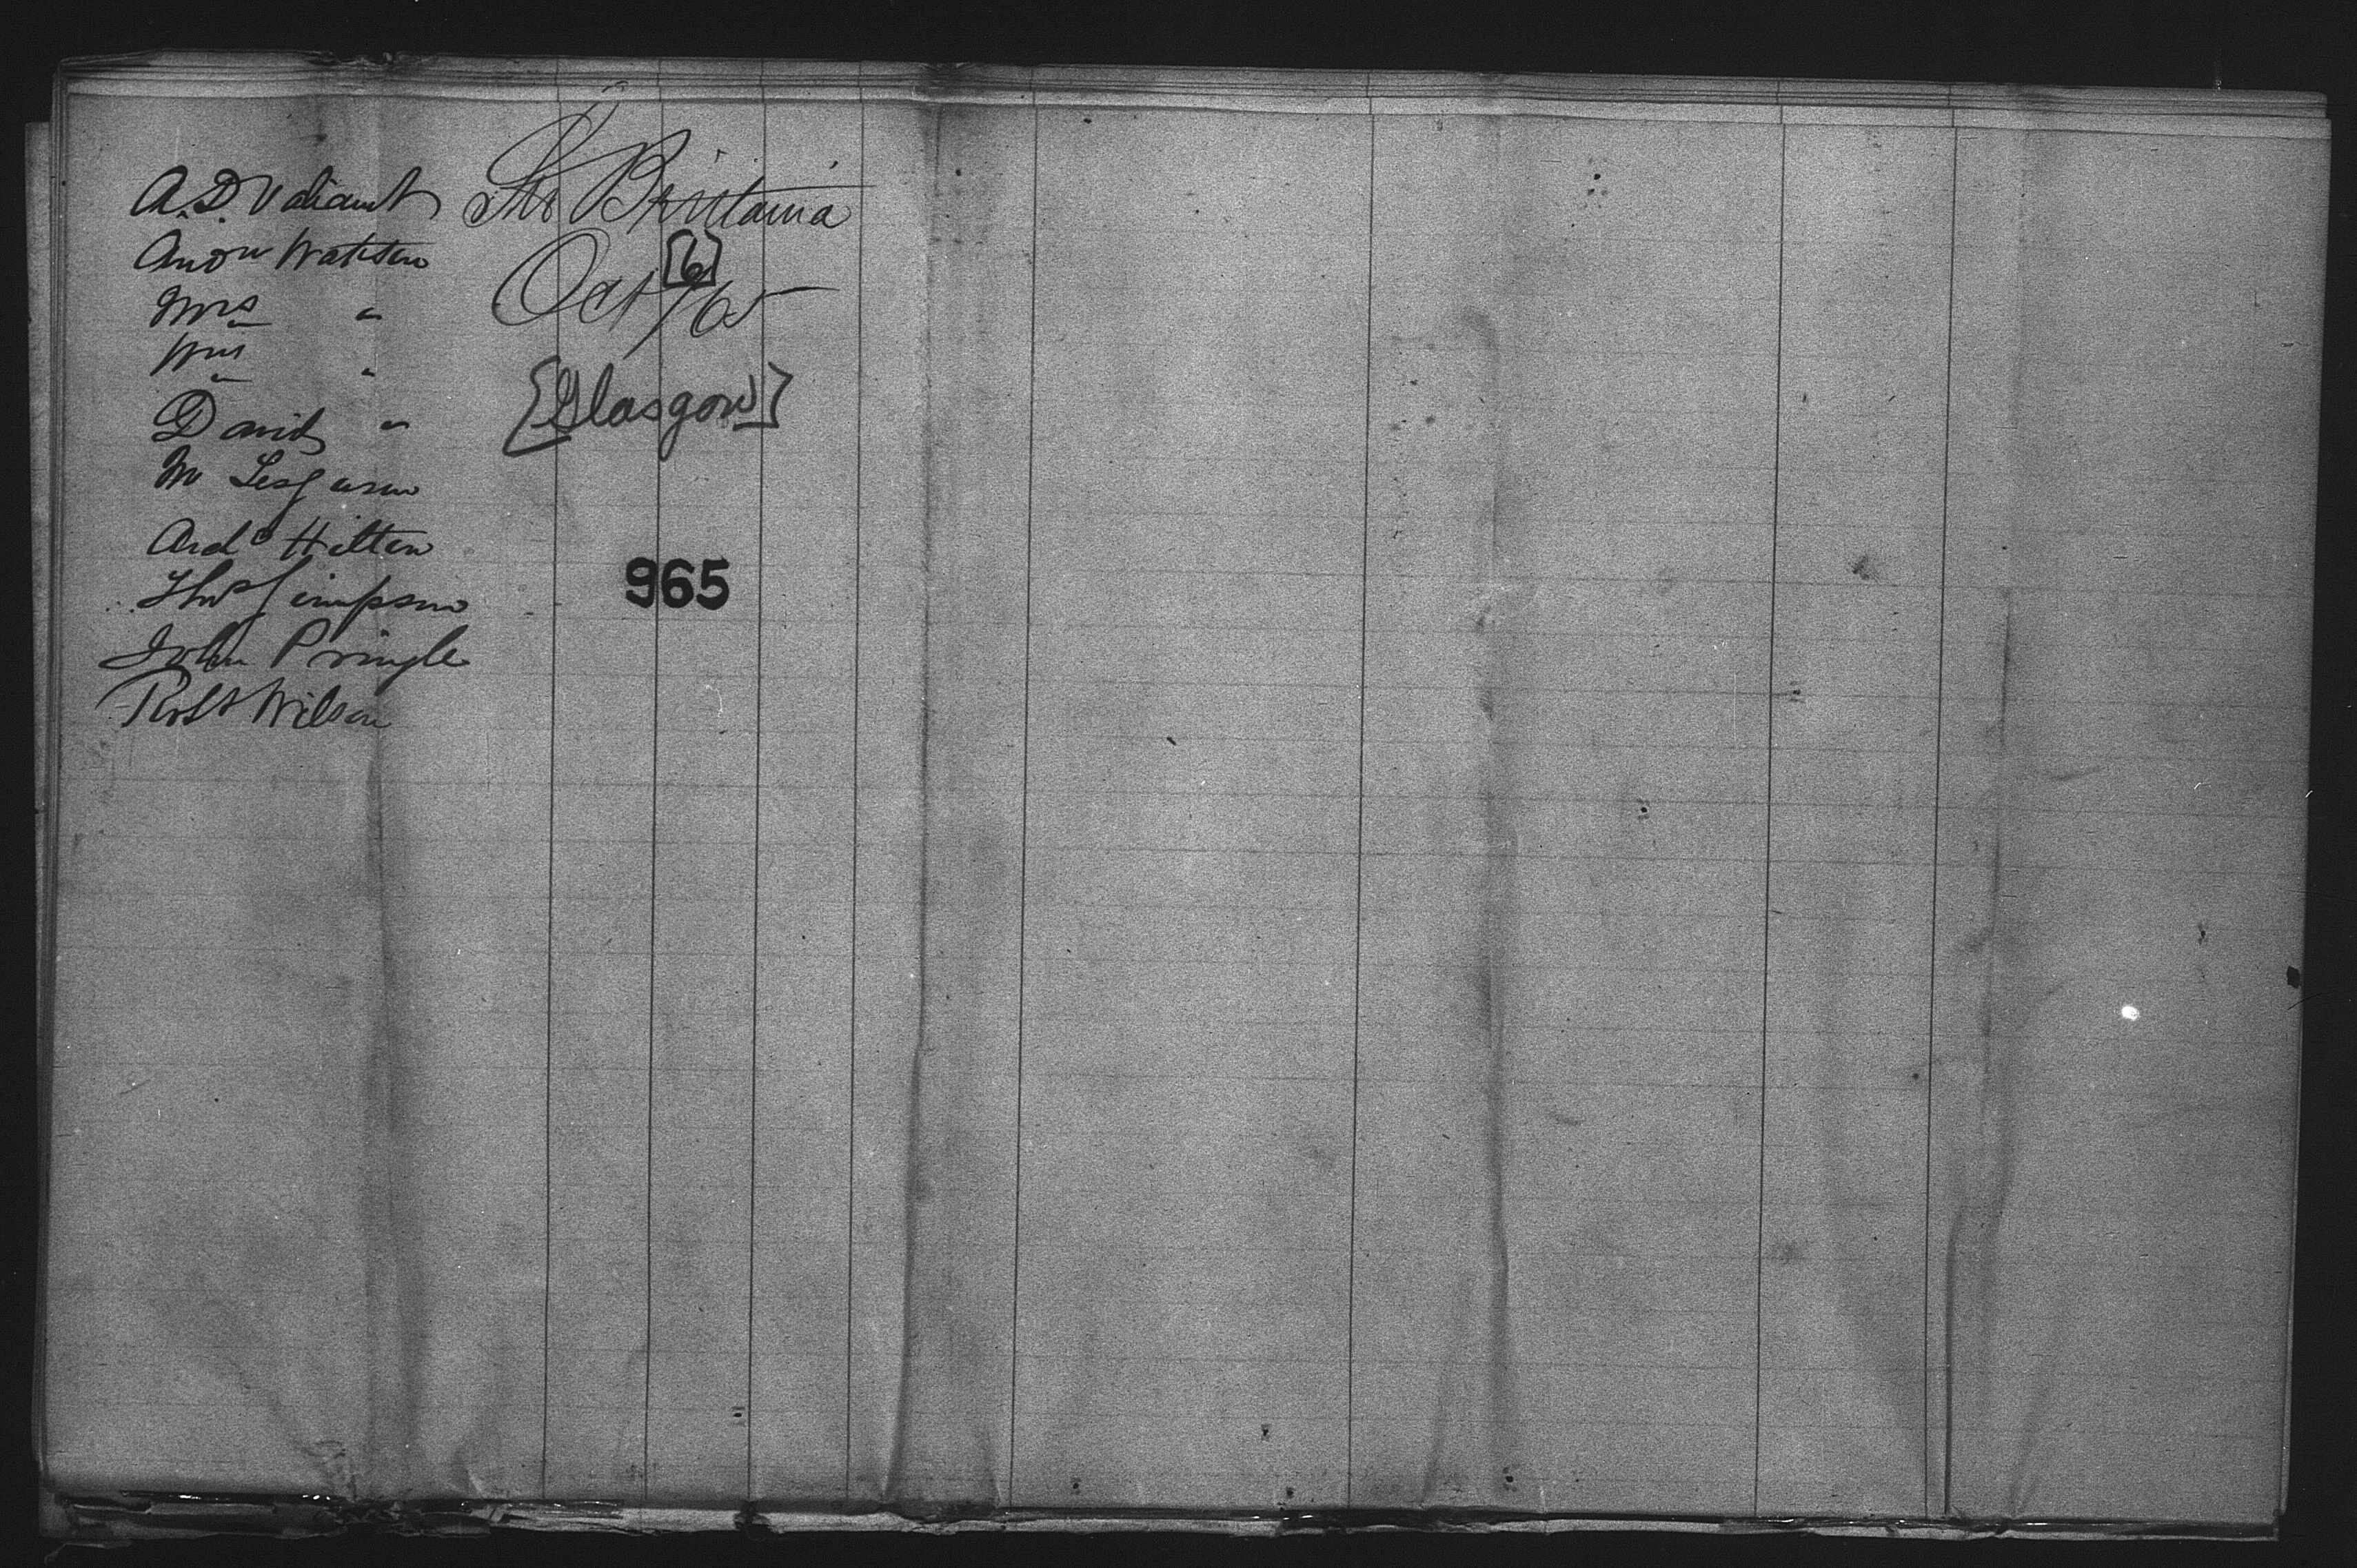 A. D. Valiant
Andw Watson
Mrs "
Wm "
David "
M Ferguson
Ard Hilton
Thos Simpson
John Pringle
Robt Wilson
Str Brittania
Oct [6]/65
[Glasgow]
965